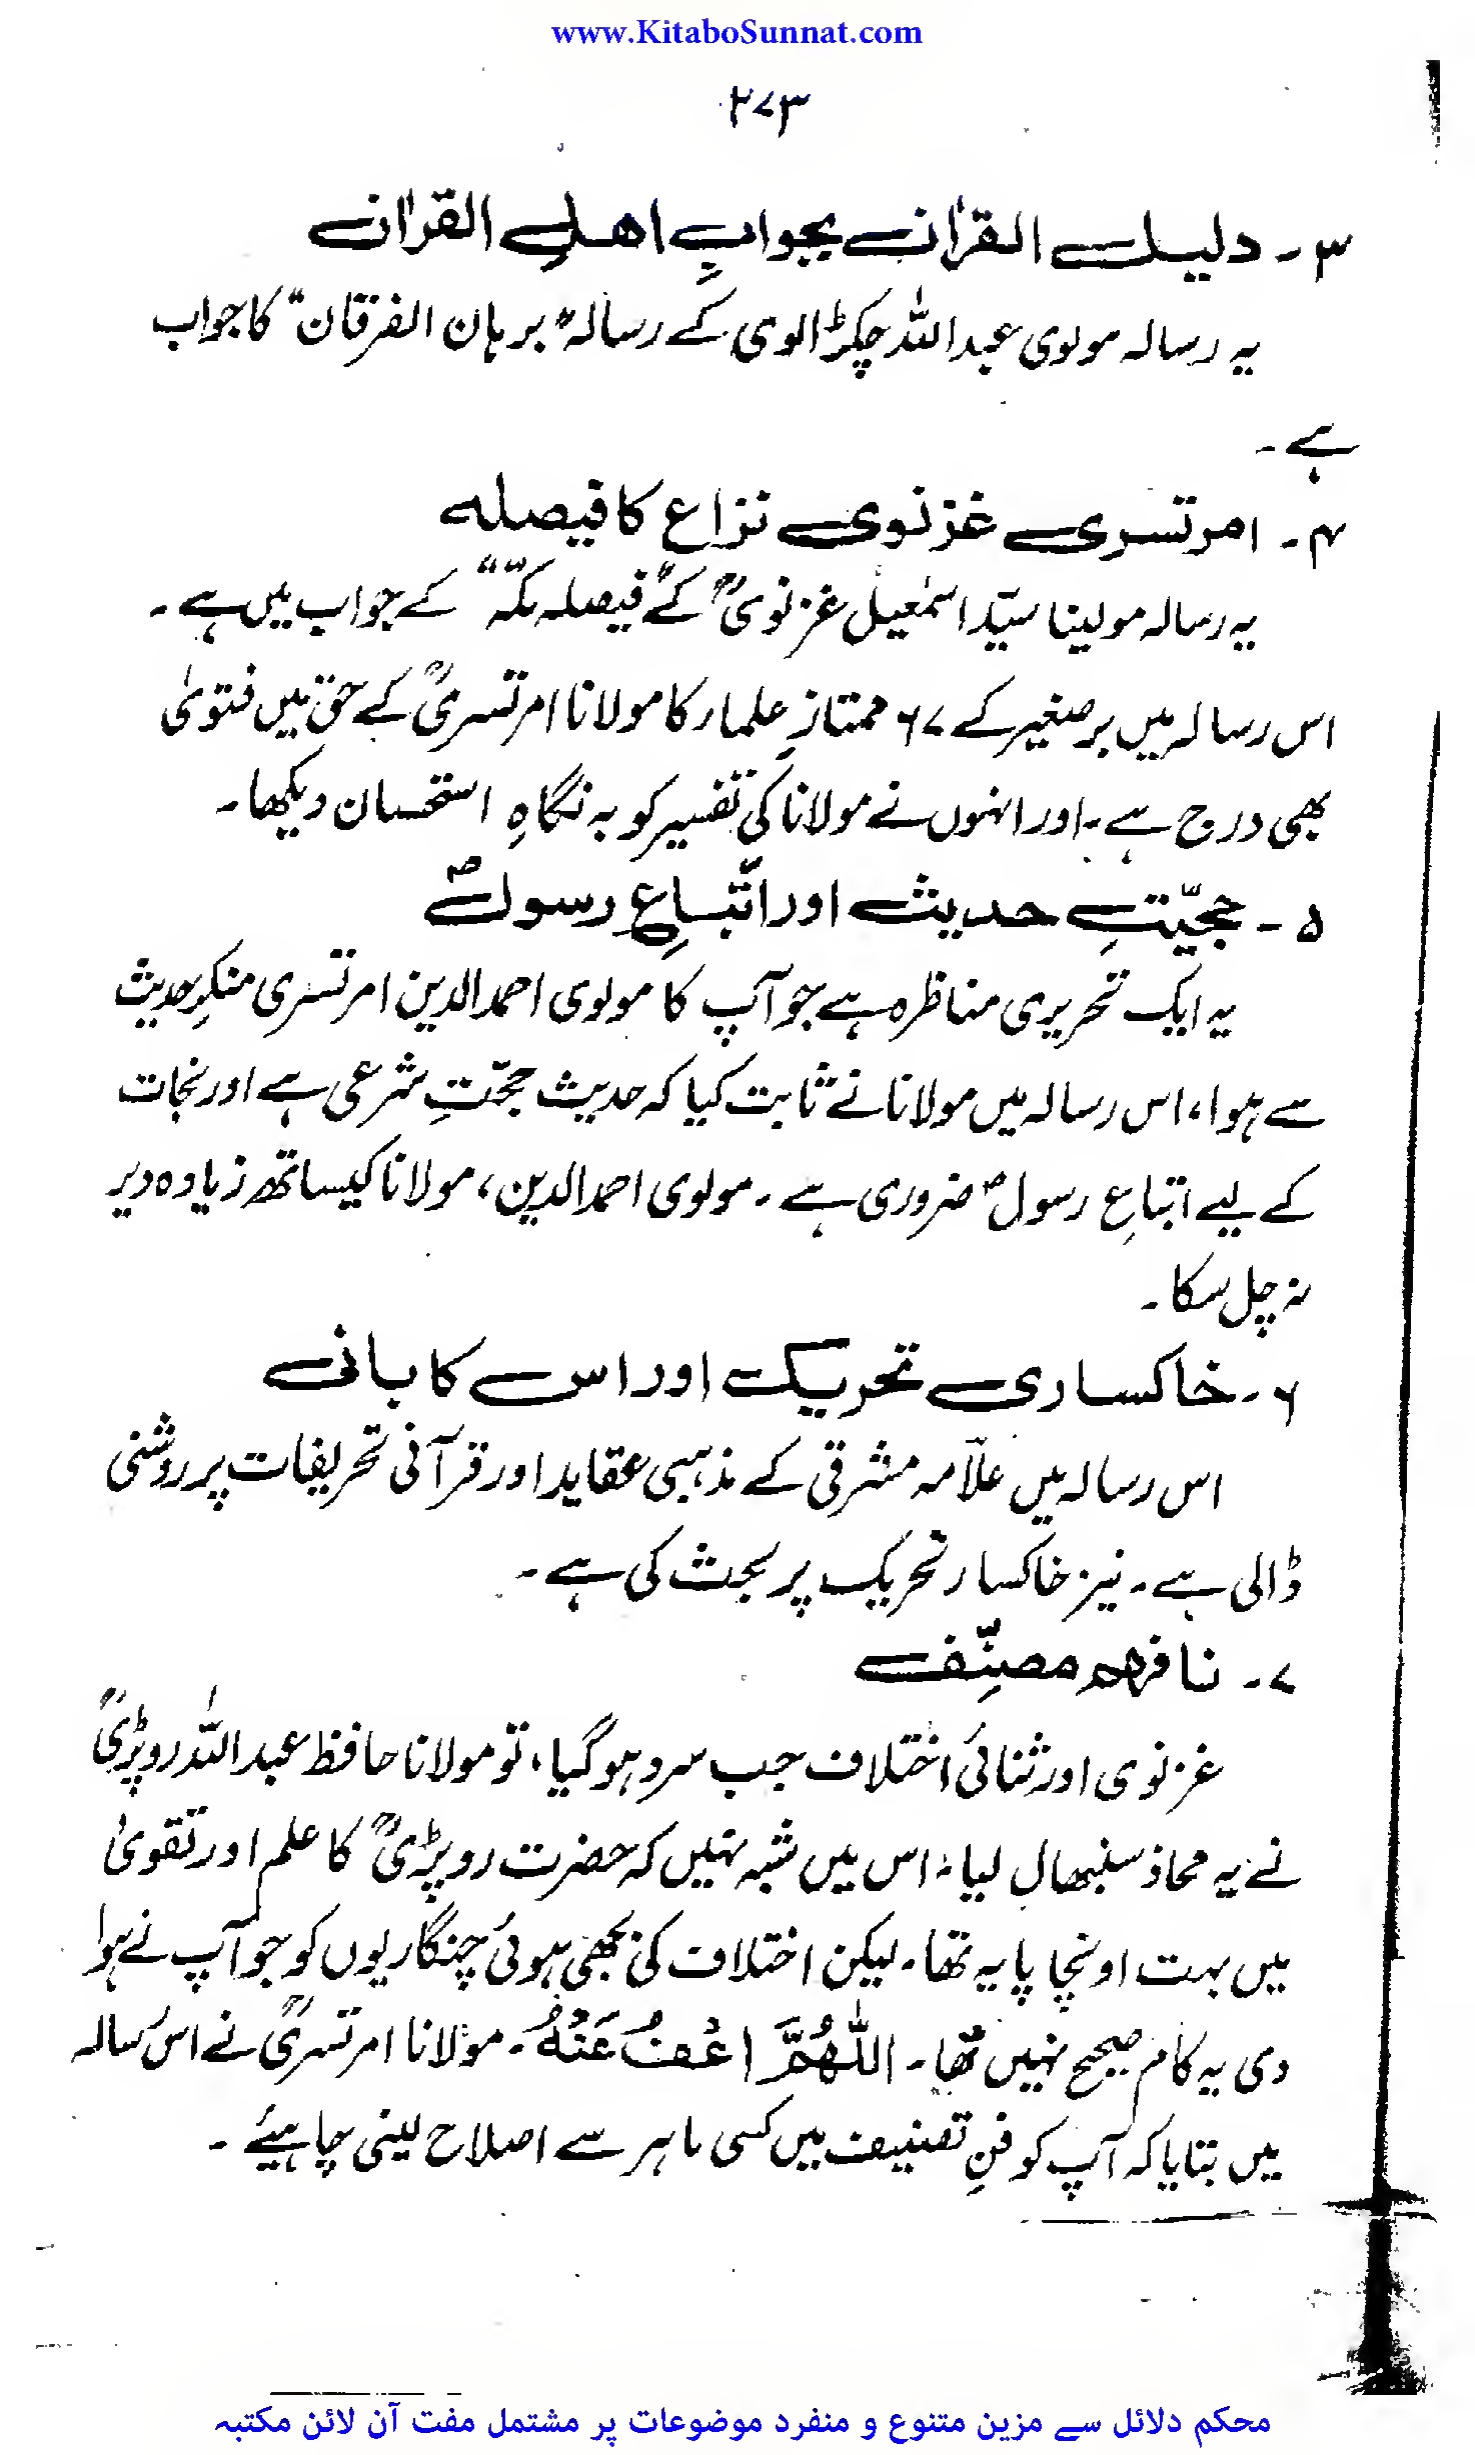 www.KitaboSunnat.com
۲۷۳
۳۔ دلیل القرآن بجوابِ اھل القرآن
یہ رسالہ مولوی عبداللہ چکڑالوی کے رسالہ "برہان الفرقان" کا جواب
ہے۔
۴۔ امرتسری غزنوی نزاع کا فیصلہ
یہ رسالہ مولینا سیّد اسمٰعیل غزنویؒ کے "فیصلہ مکّہ" کے جواب میں ہے۔
اس رسالہ میں برصغیر کے ۶۷ ممتاز علماء کا مولانا امرتسریؒ کے حق میں فتویٰ
بھی درج ہے۔ اور انہوں نے مولانا کی تفسیر کو بہ نگاہِ استحسان دیکھا۔
۵۔ حجیّتِ حدیث اور اتّباعِ رسولؐ
یہ ایک تحریری مناظرہ ہے جو آپ کا مولوی احمدالدین امرتسری منکرِ حدیث
سے ہوا، اس رسالہ میں مولانا نے ثابت کیا کہ حدیث حجّتِ شرعی ہے اور نجات
کے لیے اتباعِ رسولؐ ضروری ہے۔ مولوی احمدالدین، مولانا کیساتھ زیادہ دیر
نہ چل سکا۔
۶۔ خاکساری تحریک اور اس کا بانی
اس رسالہ میں علاّمہ مشرقی کے مذہبی عقاید اور قرآنی تحریفات پر روشنی
ڈالی ہے۔ نیز خاکسار تحریک پر بحث کی ہے۔
۷۔ نافہم مصنّف
غزنوی اور ثنائی اختلاف جب سرد ہوگیا، تو مولانا حافظ عبداللہ روپڑیؒ
نے یہ محاذ سنبھال لیا، اس میں شبہ نہیں کہ حضرت روپڑیؒ کا علم اور تقویٰ
میں بہت اونچا پایہ تھا۔ لیکن اختلاف کی بجھی ہوئی چنگاریوں کو جو آپ نے ہوا
دی یہ کام صحیح نہیں تھا۔ اَللّٰھُمَّ اعْفُ عَنْهُ۔ مولانا امرتسریؒ نے اس رسالہ
میں بتایا کہ آپ کو فنِ تصنیف میں کسی ماہر سے اصلاح لینی چاہیئے۔
محکم دلائل سے مزین متنوع و منفرد موضوعات پر مشتمل مفت آن لائن مکتبہ